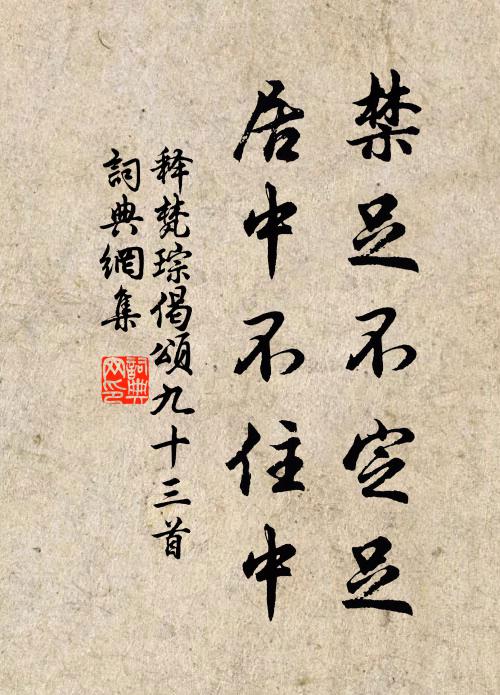 禁足不定足
居中不住中
释梵琮偈頌九十三首
詞典網集
詞典
网印